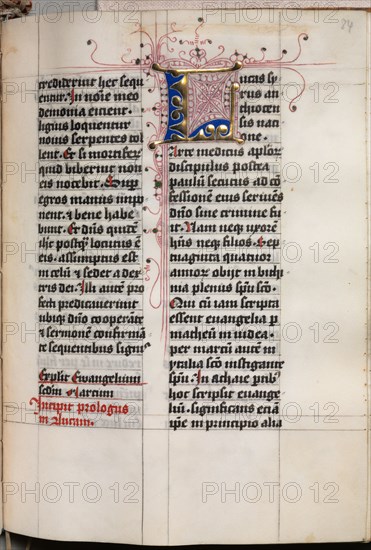 24
crediderint hec sequ
entur. In noīe meo
demonia eicient.
linguis loquentur
nouis serpentes tol
lent. Et si mortifer
quid biberint non
eis nocebit. Sup
egros manus impo
nent. & bene habe
bunt. Et dn̄s quidē
ihc postq̄ locutus ē
eis. assumptus est
in celū & sedet a dex
tris dei. Illi autē pro
fecti predicauerunt
ubiq̄ dn̄o coopeārte
& sermonē confirmā
te sequentibus signis
Explicit Ewangelium
scdm Marcum
Incipit prologus
in Lucam.
Lucas sy
rus an
thiocen
sis nati
one.
Arte medicus aplōr
discipulus postea
paulū secutus ad cō
fessionē eius seruiēs
dn̄o sine crimine fu
it. Nam neq; uxorē
hn̄s neq; filios. Sep
tuaginta quatuor
annor obijt in bithi
nia plenus spū sc̄o.
Qui cū iam scripta
essent euangelia p
matheū in iudea.
per marcū autē in
ytalia sc̄o instigante
spū. In achaie ptib
hoc scripsit euange
liū. significans etiā
ip̄e in principio alia
PHOTO 12